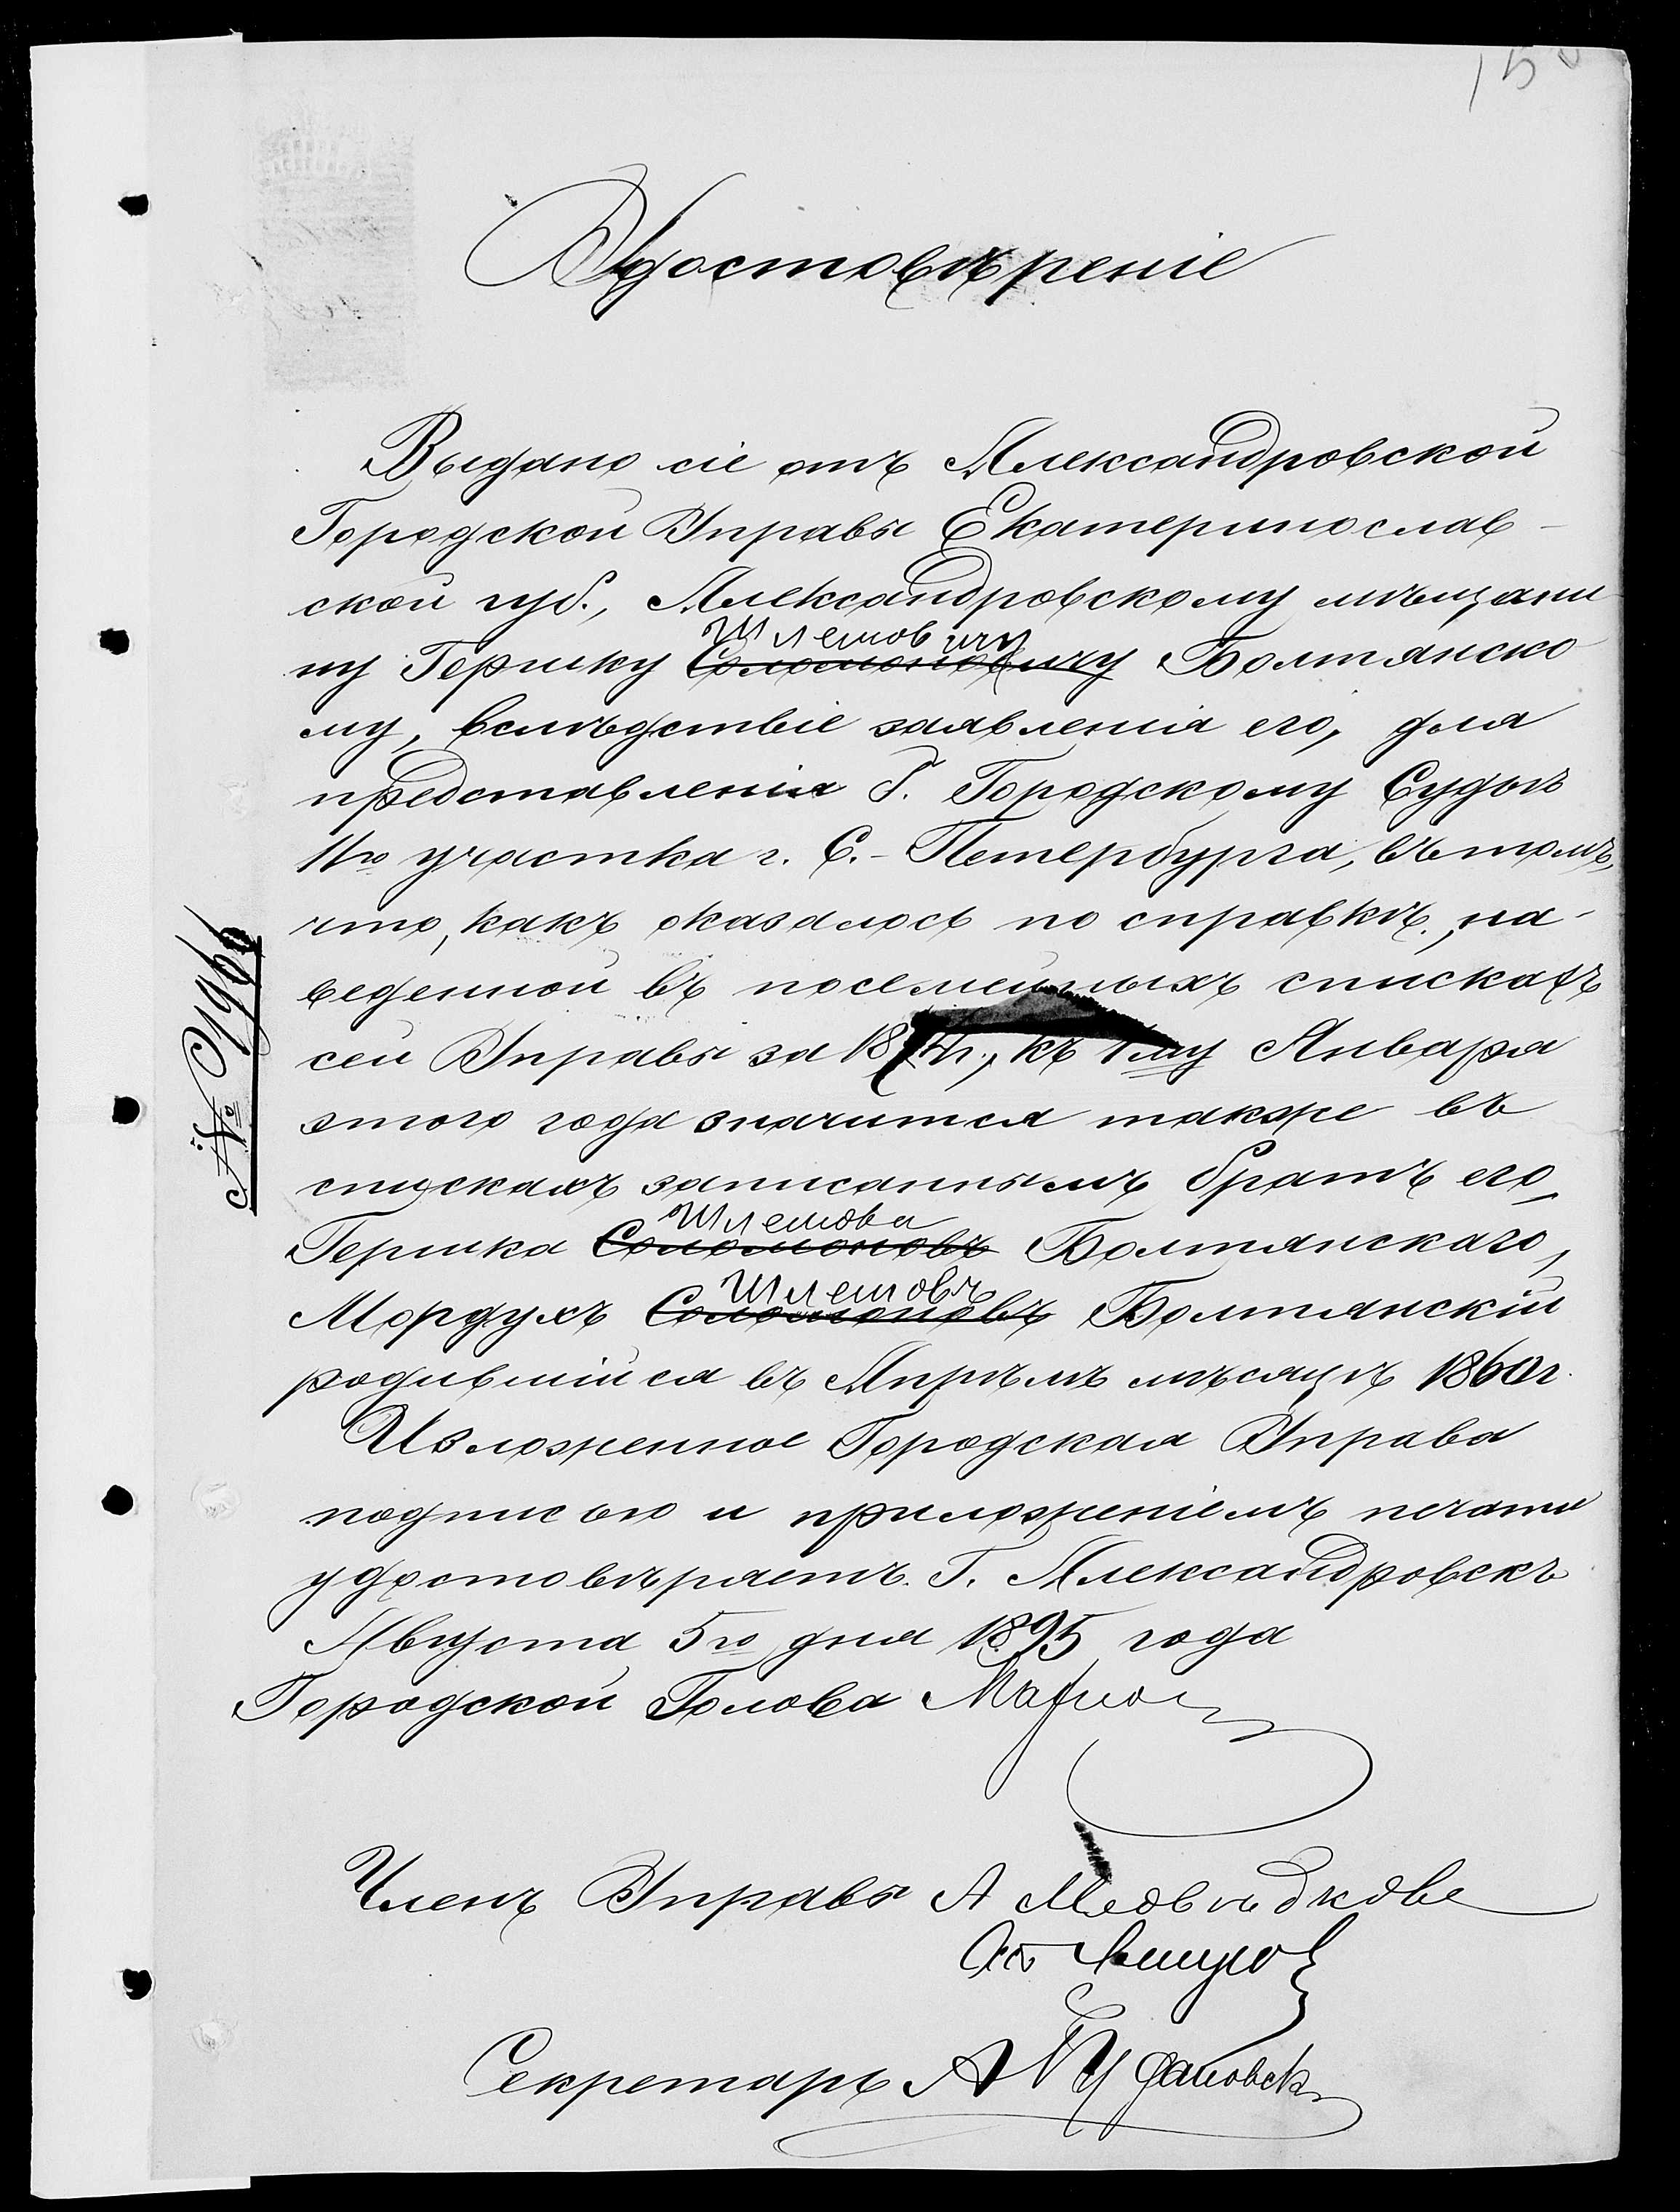 150
Удостовѣреніе
Выдано сіе отъ Александровской
Городской Управы Екатеринослав-
ской губ., Александровскому мѣщани
Шлемовичу
ну Гершку Соломоновичу Болтянско
му, вслѣдствіе заявленія его, для
представленія Г. Городскому Судьѣ
11го участка г. С.-Петербурга, въ томъ,
что, какъ оказалось по справкѣ, на-
веденной въ посемейныхъ спискахъ
сей Управы за 1874г., къ 1му Января
этого года значится также въ
спискахъ записаннымъ братъ его,
Шлемова
Гершка Соломоновъ Болтянскаго,
Шлемовъ
Мордухъ Соломоновъ Болтянскій
родившійся въ Апрѣлѣ мѣсяцѣ 1860г.
Изложенное Городская Управа
подписью и приложеніемъ печати
удостовѣряетъ. Г. Александровскъ
Августа 5го дня 1895 года
Городской Голова
Членъ Управы А Медвѣдковъ
Секретарь А
№